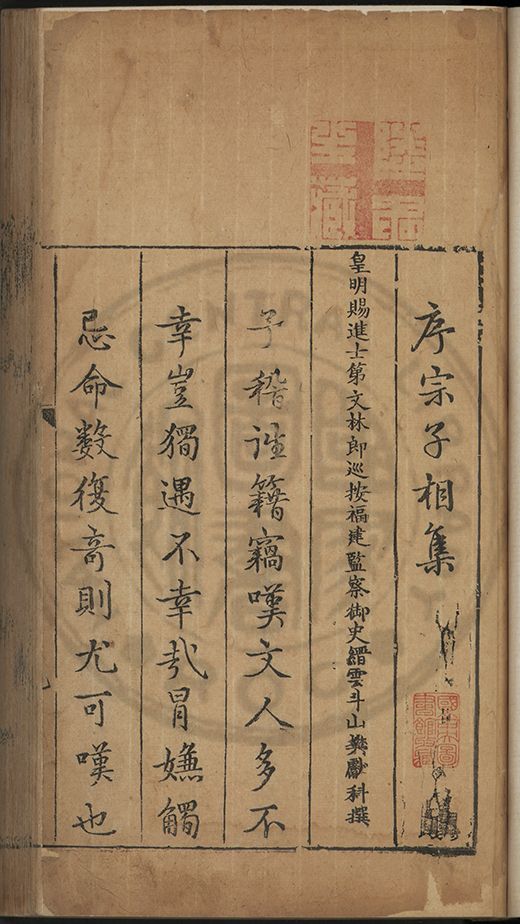 序宗子相集
皇明賜進士第文林郎巡按福建監察御史縉雲斗山樊獻科撰
予稽往籍竊嘆文人多不
幸豈獨遇不幸㢤冒嫌觸
忌命數復奇則尤可嘆也